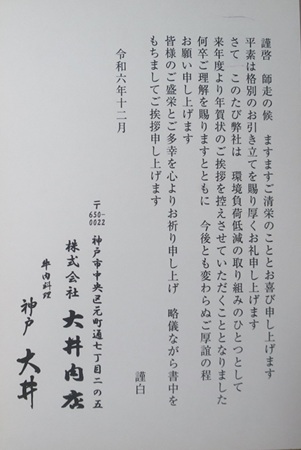 謹啓　師走の候　ますますご清栄のこととお喜び申し上げます
平素は格別のお引き立てを賜り厚くお礼申し上げます
さて　このたび弊社は　環境負荷低減の取り組みのひとつとして
来年度より年賀状のご挨拶を控えさせていただくこととなりました
何卒ご理解を賜りますとともに　今後とも変わらぬご厚誼の程
お願い申し上げます
皆様のご盛栄とご多幸を心よりお祈り申し上げ　略儀ながら書中を
もちましてご挨拶申し上げます
謹白
令和六年十二月
〒650-0022
神戸市中央区元町通七丁目二の五
株式会社 大井肉店
牛肉料理 神戸 大井